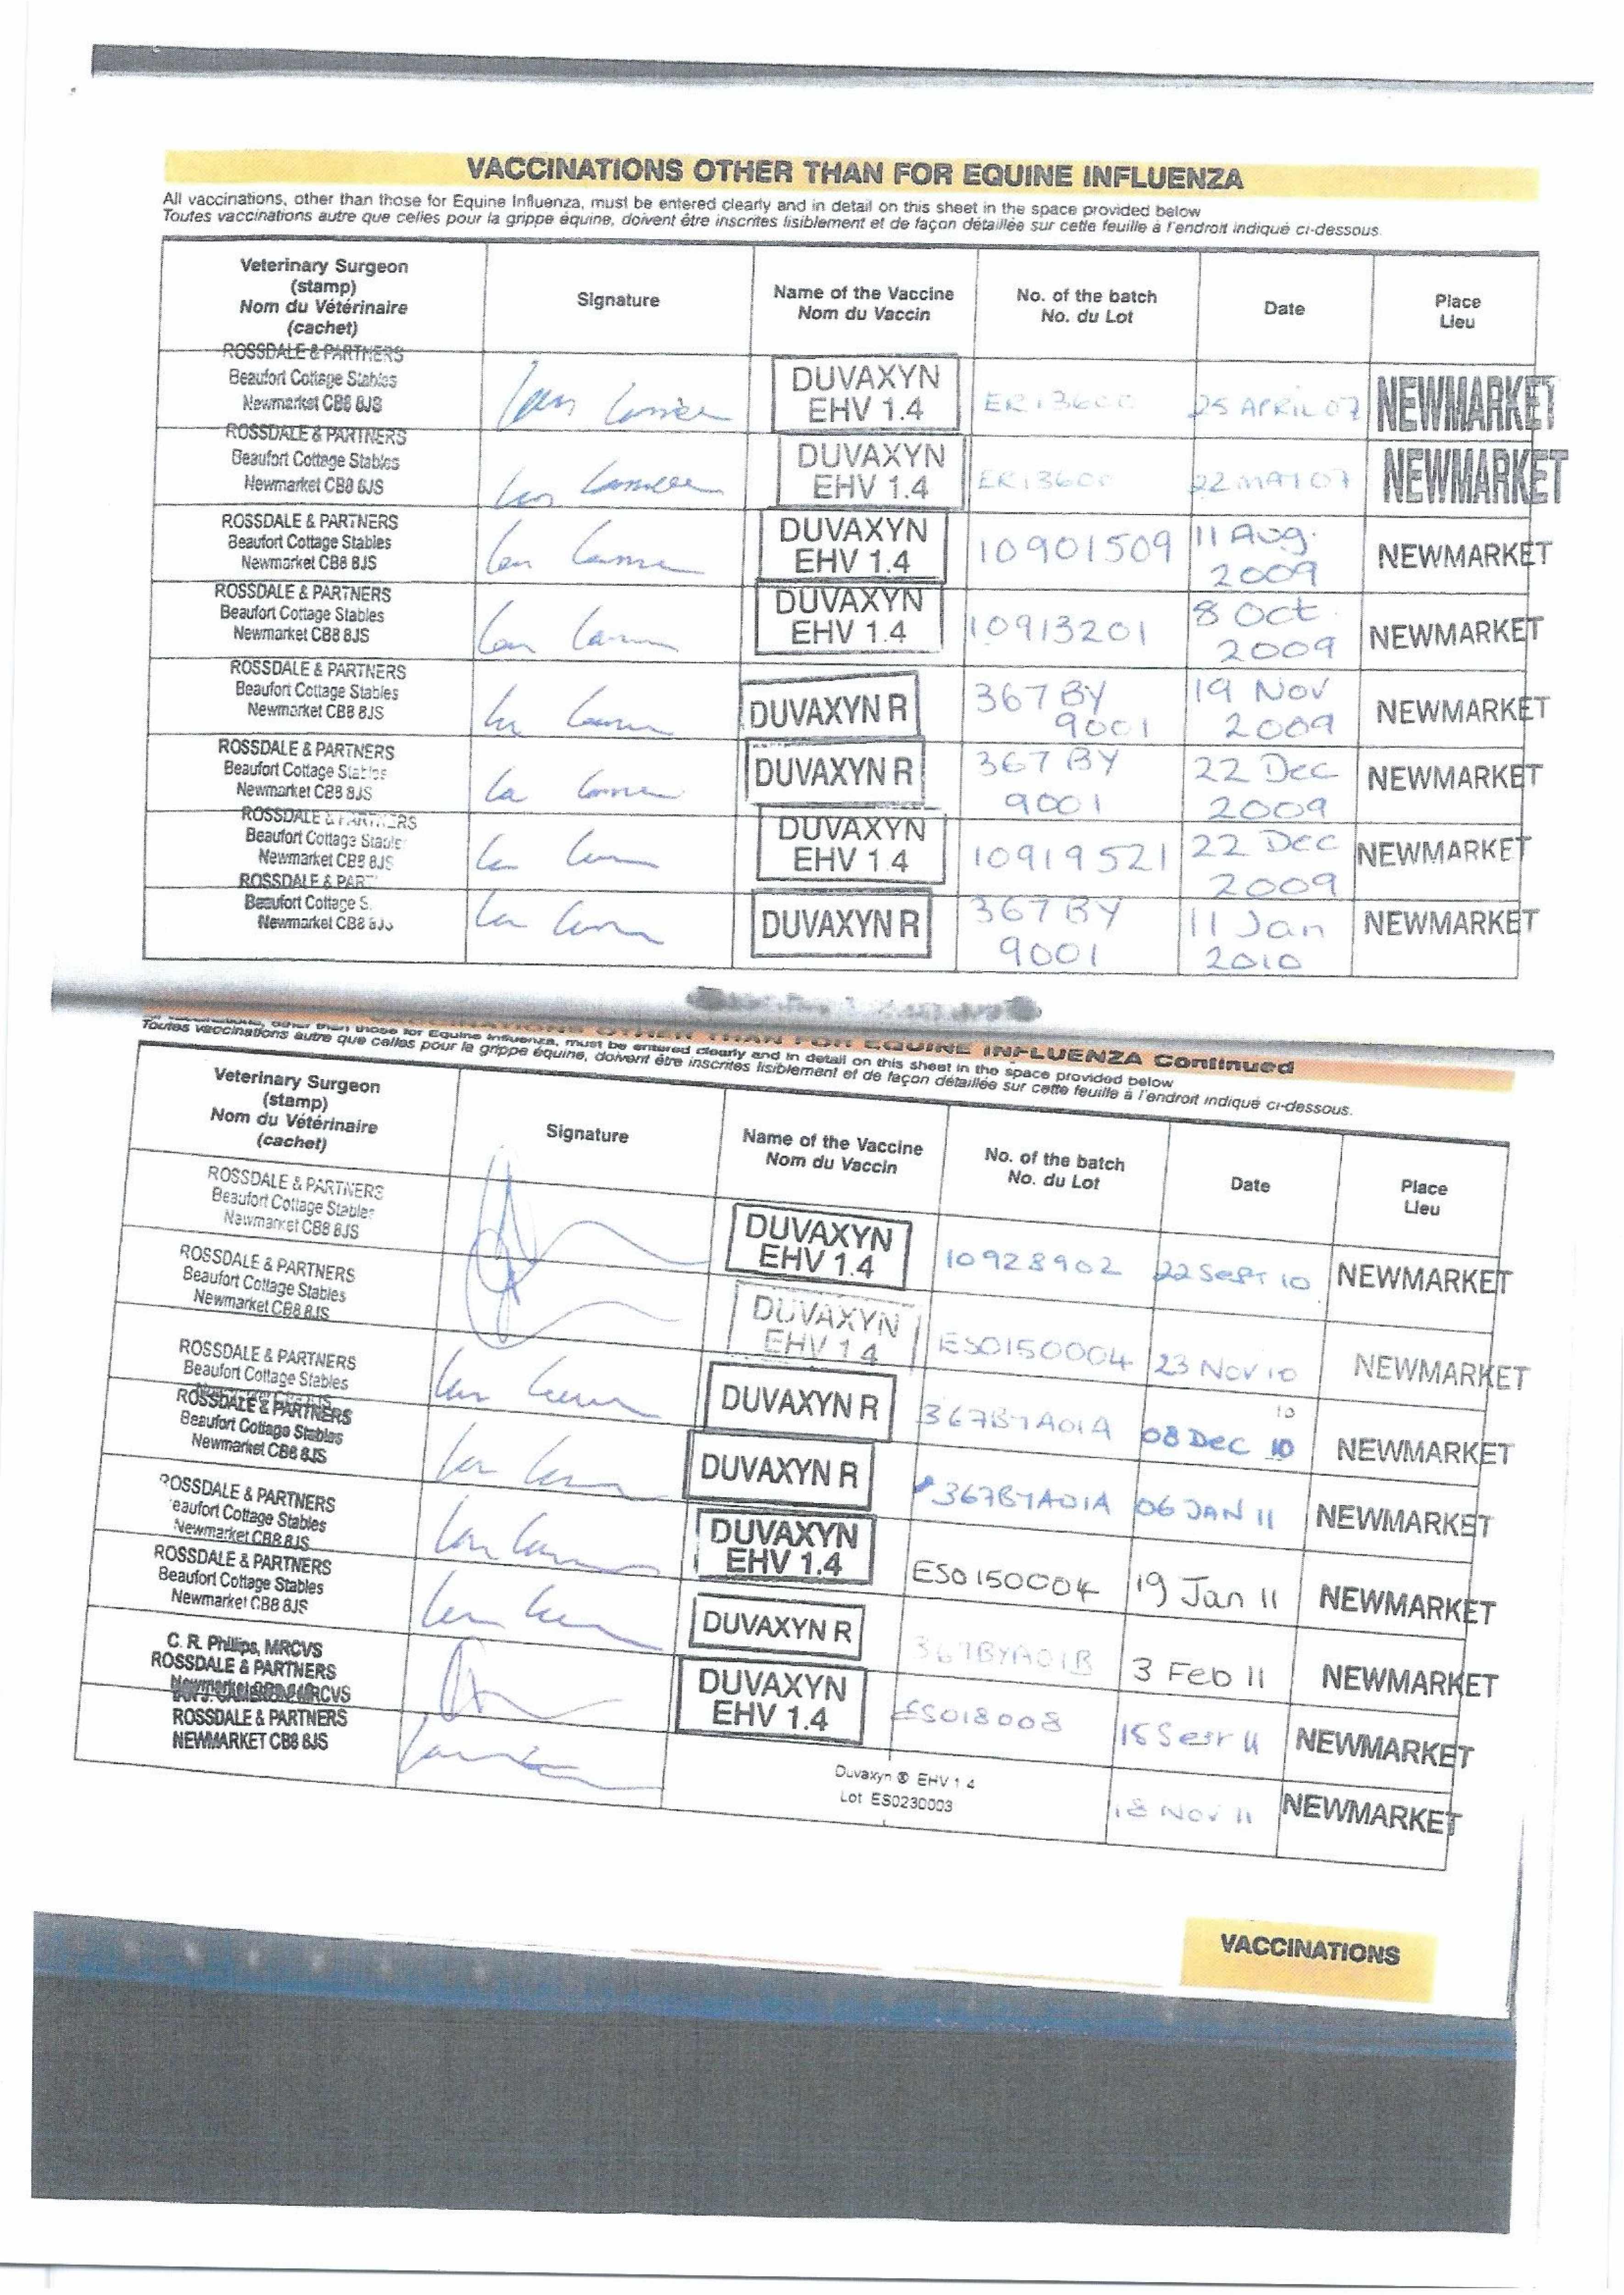 VACCINATIONS OTHER THAN FOR EQUINE INFLUENZA
All vaccinations, other than those for Equine Influenza, must be entered clearly and in detail on this sheet in the space provided below
Toutes vaccinations autre que celles pour la grippe équine, doivent être inscrites lisiblement et de façon détaillée sur cette feuille à l'endroit indiqué ci-dessous.
Veterinary Surgeon
(stamp)
Nom du Vétérinaire
(cachet)
Signature
Name of the Vaccine
Nom du Vaccin
No. of the batch
No. du Lot
Date
Place
Lieu
ROSSDALE & PARTNERS
Beaufort Cottage Stables
Newmarket CB8 8JS
DUVAXYN
EHV 1.4
25 APRIL 07
NEWMARKET
ROSSDALE & PARTNERS
Beaufort Cottage Stables
Newmarket CB8 8JS
DUVAXYN
EHV 1.4
22 MAY 07
NEWMARKET
ROSSDALE & PARTNERS
Beaufort Cottage Stables
Newmarket CB8 8JS
DUVAXYN
EHV 1.4
10901509
11 Aug.
2009
NEWMARKET
ROSSDALE & PARTNERS
Beaufort Cottage Stables
Newmarket CB8 8JS
DUVAXYN
EHV 1.4
10913201
8 Oct
2009
NEWMARKET
ROSSDALE & PARTNERS
Beaufort Cottage Stables
Newmarket CB8 8JS
DUVAXYN R
367 BY
9001
19 Nov
2009
NEWMARKET
ROSSDALE & PARTNERS
Beaufort Cottage Stables
Newmarket CB8 8JS
DUVAXYN R
367 BY
9001
22 Dec
2009
NEWMARKET
ROSSDALE & PARTNERS
Beaufort Cottage Stable
Newmarket CB8 8JS
DUVAXYN
EHV 1.4
10919521
22 Dec
2009
NEWMARKET
ROSSDALE & PART
Beaufort Cottage S
Newmarket CB8 8JS
DUVAXYN R
367 BY
9001
11 Jan
2010
NEWMARKET
OTHER THAN FOR EQUINE INFLUENZA Continued
other than those for Equine Influenza, must be entered clearly and in detail on this sheet in the space provided below
Toutes vaccinations autre que celles pour la grippe équine, doivent être inscrites lisiblement et de façon détaillée sur cette feuille à l'endroit indiqué ci-dessous.
Veterinary Surgeon
(stamp)
Nom du Vétérinaire
(cachet)
Signature
Name of the Vaccine
Nom du Vaccin
No. of the batch
No. du Lot
Date
Place
Lieu
ROSSDALE & PARTNERS
Beaufort Cottage Stables
Newmarket CB8 8JS
DUVAXYN
EHV 1.4
10928902
22 SEPT 10
NEWMARKET
ROSSDALE & PARTNERS
Beaufort Cottage Stables
Newmarket CB8 8JS
DUVAXYN
EHV 1 4
ES0150004
23 NOV 10
NEWMARKET
ROSSDALE & PARTNERS
Beaufort Cottage Stables
DUVAXYN R
367BYA01A
10
08 DEC 10
NEWMARKET
ROSSDALE & PARTNERS
Beaufort Cottage Stables
Newmarket CB8 8JS
DUVAXYN R
367BYA01A
06 JAN 11
NEWMARKET
ROSSDALE & PARTNERS
eaufort Cottage Stables
Newmarket CB8 8JS
DUVAXYN
EHV 1.4
ES0150004
19 Jan 11
NEWMARKET
ROSSDALE & PARTNERS
Beaufort Cottage Stables
Newmarket CB8 8JS
DUVAXYN R
367BYA01B
3 Feb 11
NEWMARKET
C. R. Phillips, MRCVS
ROSSDALE & PARTNERS
DUVAXYN
EHV 1.4
ES018008
SEPT 11
NEWMARKET
ROSSDALE & PARTNERS
NEWMARKET CB8 8JS
Duvaxyn ® EHV 1 4
Lot ES0230003
18 NOV 11
NEWMARKET
VACCINATIONS